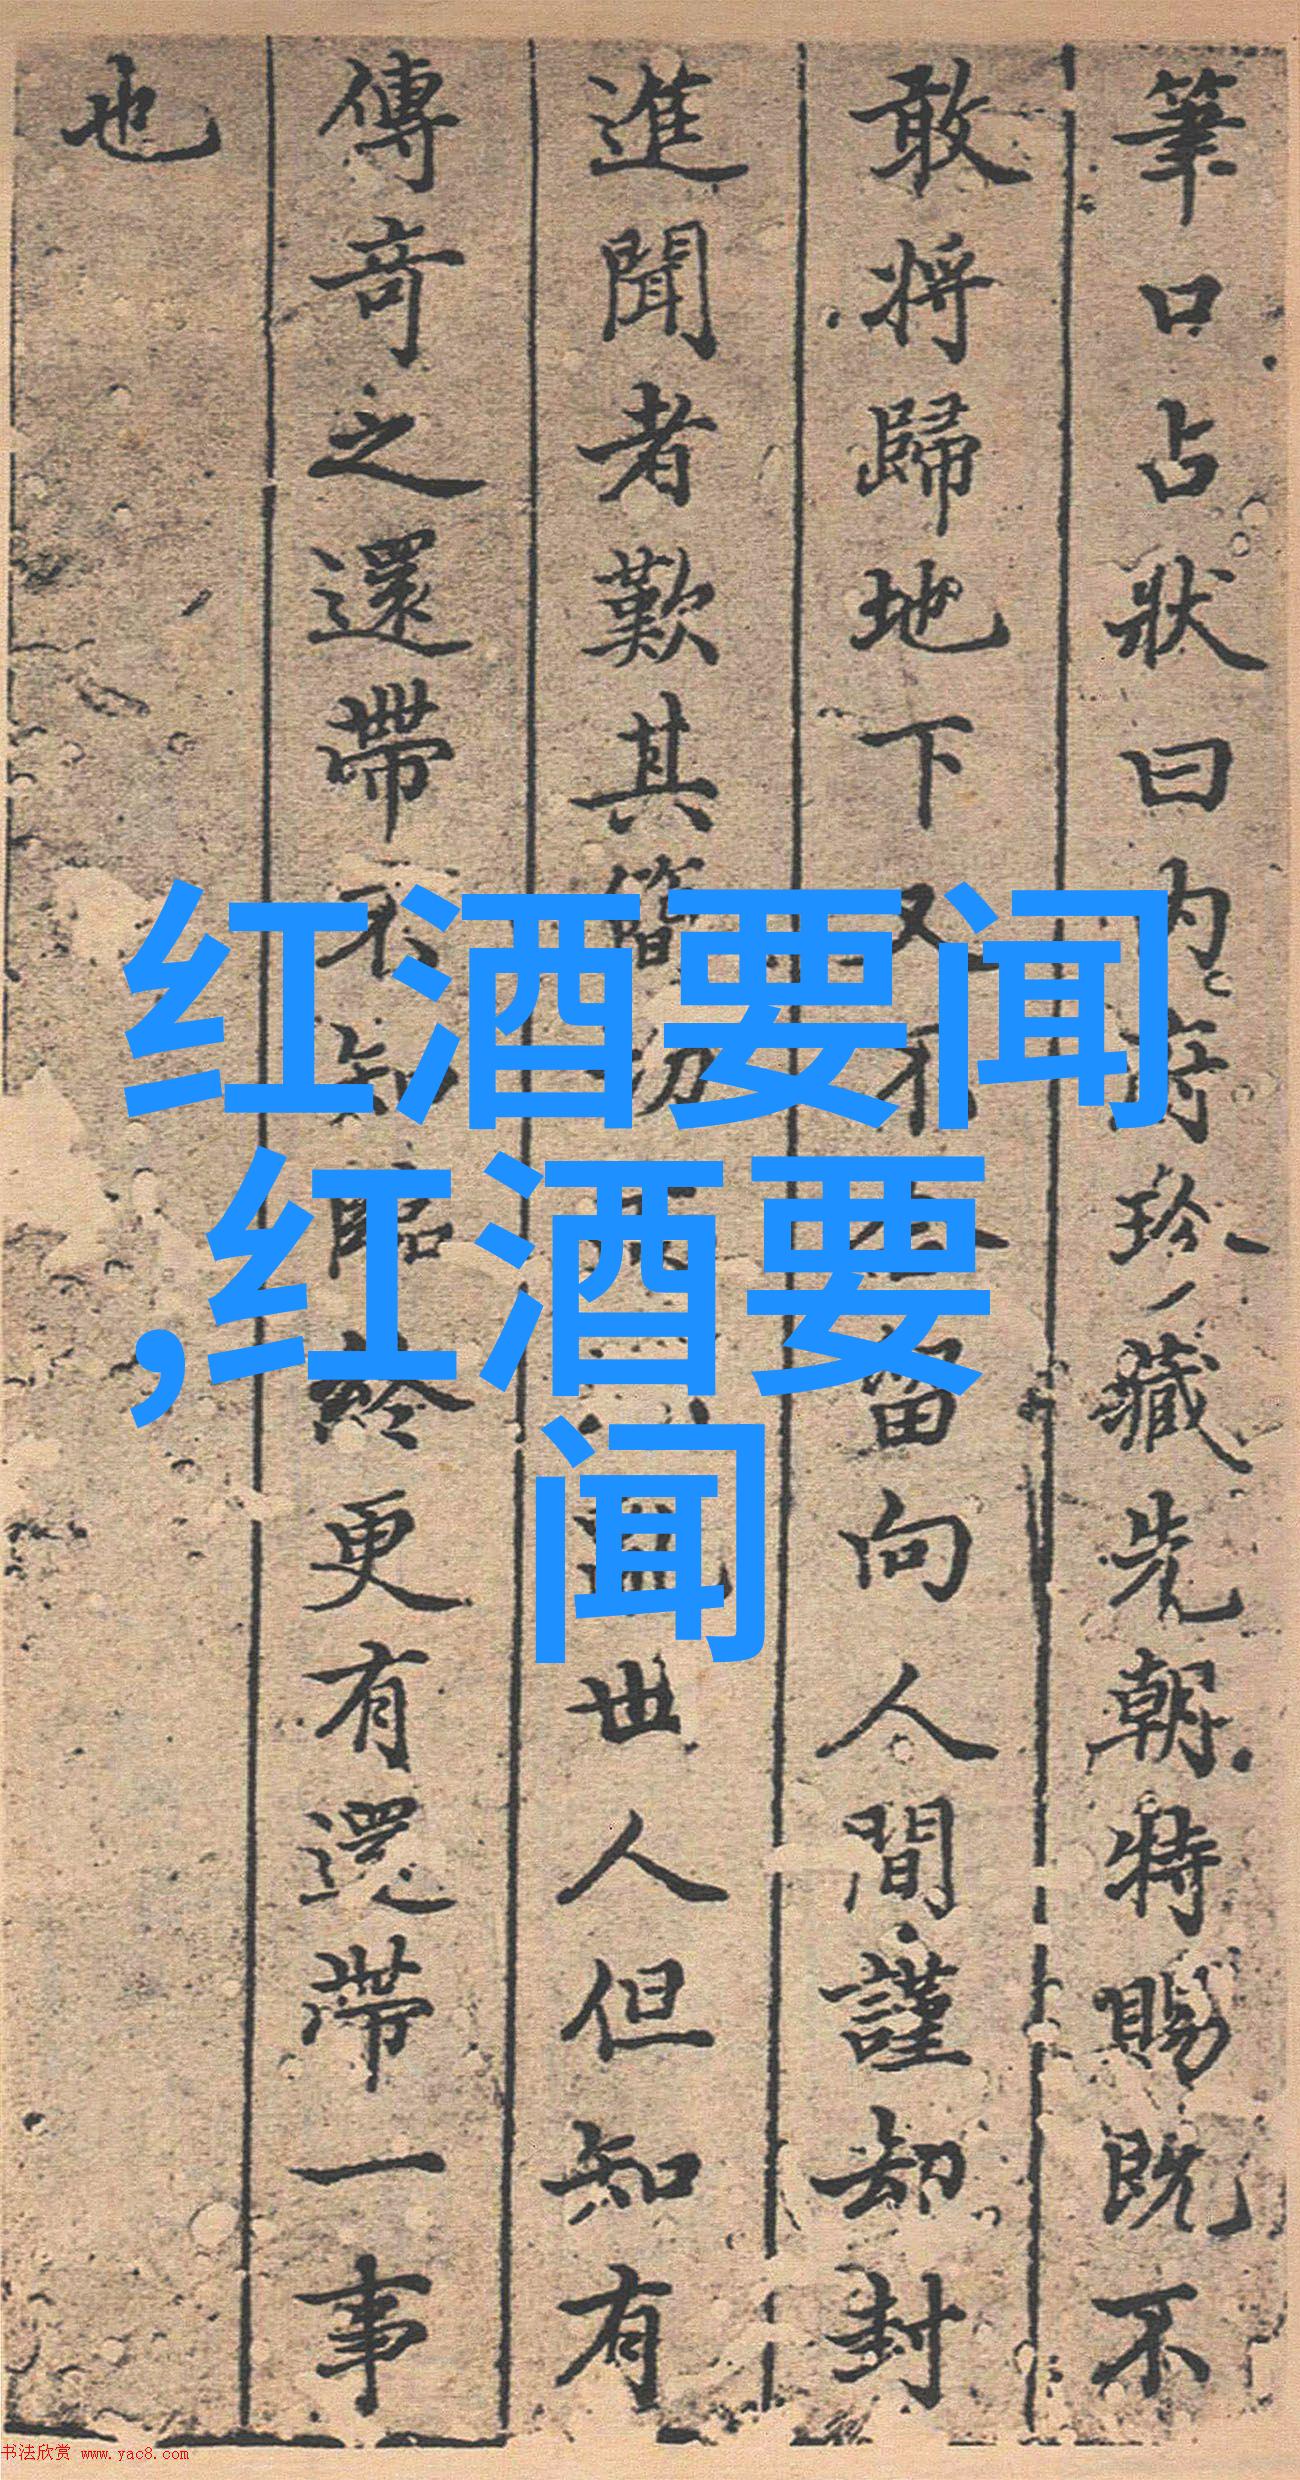 筆口占狀曰内府珍藏先朝特賜既不
敢將歸地下又不合留向人間謹却封
進聞者歎其簡切世人但知有
傳奇之還帶不知臨終更有還帶一事
也
红酒要闻
,红酒要
闻
书法欣赏 www.yac8.com